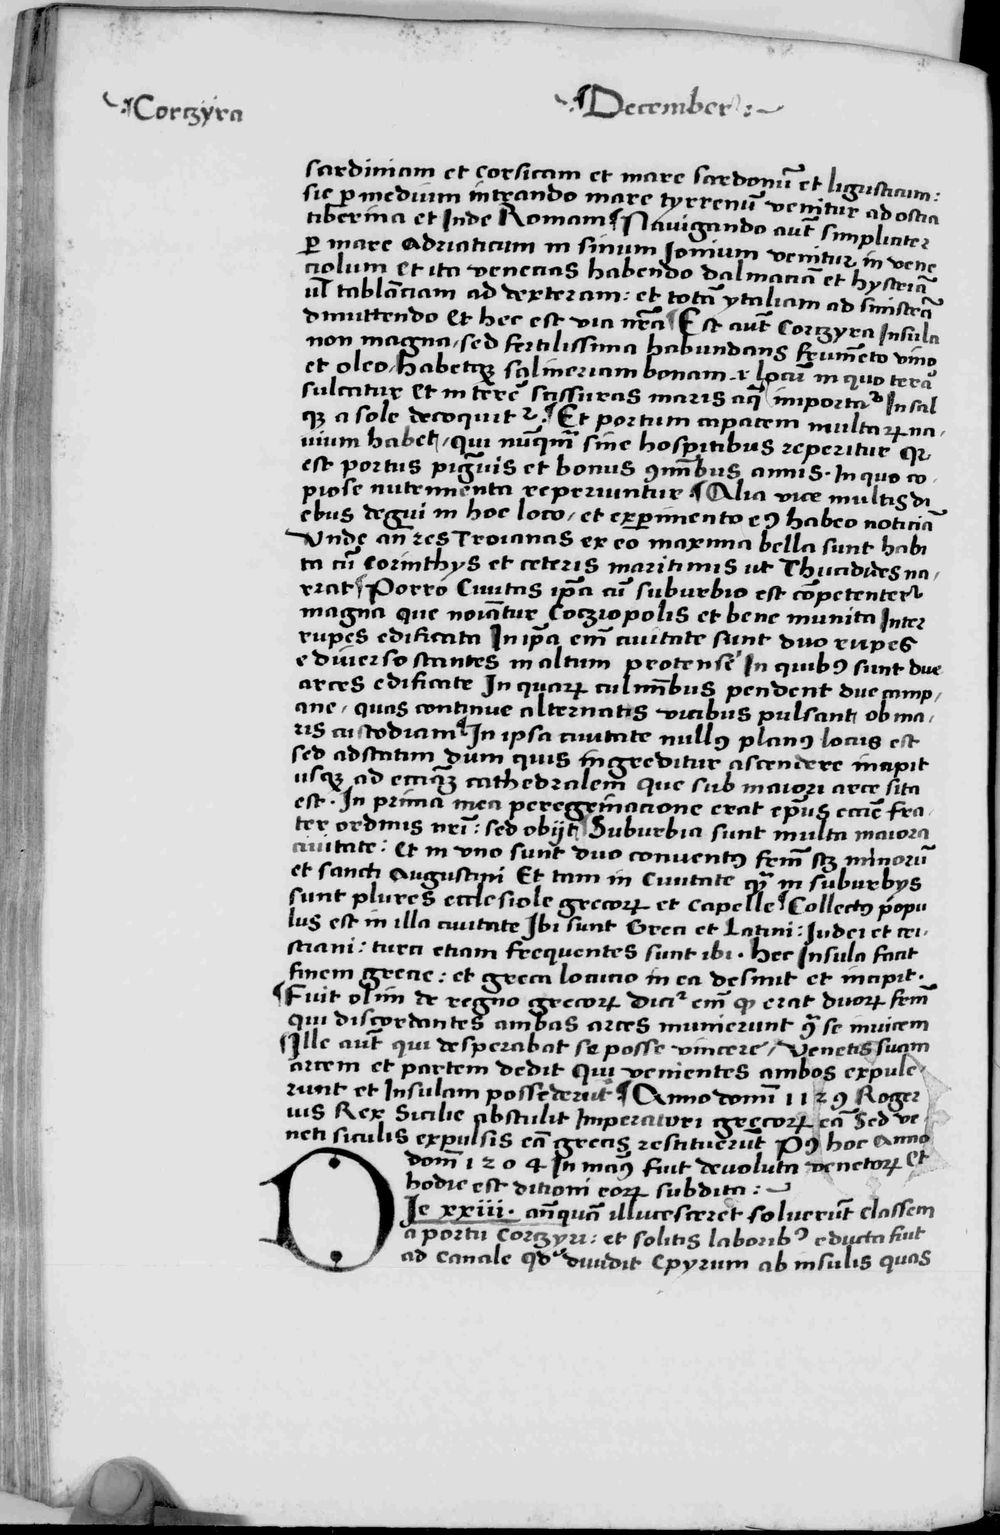 Corczyra
December
sardiniam et corsicam et mare sardonuͫ et ligusticum:
sic ꝑ medium intrando mare tyrrenuͫ venitur ad ostia
tiberina et Inde Romam ¶ Navigando aut̄ simpliciter
ꝑ mare Adriaticum in sinum Jonium venitur in vene
ciolum et ita venecias habendo dalmaciā et hysteriā
ul̄ tablāciam ad dexteram: et totā ytaliam ad sinistrā
dimittendo Et hec est via nr̄a ¶ Est aut̄ Corczyra Insula
non magna, sed fertilissima habundans frumēto vino
et oleo, habetqꝫ salineriam bonam ⁊ locū in quo tera
sulcatur Et in terre scissuras maris aq̄ importat᷑ In sal
qꝫ a sole decoquit᷑. ¶ Et portum capacem multaꝝ na,
vium habet, qui nūq̄m sine hospitibus reperitur Qꝛ
est portus piguis et bonus ꝯmbus annis. In quo co,
piose nutrimenta reperiuntur ¶ Alia vice multis di
ebus degui in hoc loco, et exꝑimento eꝯ habeo noticiā
Unde an̄ res Troianas ex eo maxima bella sunt habi
ta cū Corinthys et ceteris maritimis ut Thucidides na,
rrat ¶ Porro Civitas ip̄a cū suburbio est cōpetenter
magna que noīatur Coczopolis et bene munita Inter
rupes edificata In ip̄a em̄ civitate sunt duo rupes
e diverso stantes in altum protense In quibꝯ sunt due
arces edificate In quaꝝ culmībus pendent due camp,
ane, quas continue alternatis vicibus pulsant ob ma,
ris custodiam ¶ In ipsa civitate nullꝯ planꝯ locus est
sed adstatim dum quis ingreditur ascendere incipit
usqꝫ ad eccīaꝫ cathedralem que sub maiori arce sita
est. In prima mea peregrinacione erat ep̄us eccīe fra,
ter ordinis nr̄i: sed obijt ¶ Suburbia sunt multa maiora
civitate: et in uno sunt duo conventꝯ frm̄ scꝫ minorū
et sancti Augustini Et tam in Civitate qͣ in suburbys
sunt plures ecclesiole grecoꝝ et capelle ¶ Collectꝯ popu
lus est in illa civitate Ibi sunt Greci et Latini: Judei et cri,
stiani: turci etiam frequentes sunt ibi. Hec Insula facit
finem grecie: et greca locucio in ea desinit et incipit.
¶ Fuit olim de regno grecoꝝ Dicit᷑ em̄ ꝙ erat duoꝝ frm̄
qui discordantes ambas arces munierunt ꝯͣ se invicem
¶ Ille aut̄ qui desperabat se posse vincere, Venetis suam
arcem et partem dedit Qui venientes ambos expule,
runt et Insulam possederūt ¶ Anno domī 1129 Roger
ius Rex Sicilie abstulit Imperatori grecoꝝ eā Sed ve,
neti siculis expulsis eā grecis restituerūt Pꝯ hoc Anno
domī 1204 In manꝯ fuit devoluta venetoꝝ et
hodie est dicioni eoꝝ subdita:
DIe xxiii. an̄quā illucesceret solverūt classem
a portu Corczyre: et solitis laboribꝯ educta fuit
ad Canale qd̄ dividit Epyrum ab insulis quas